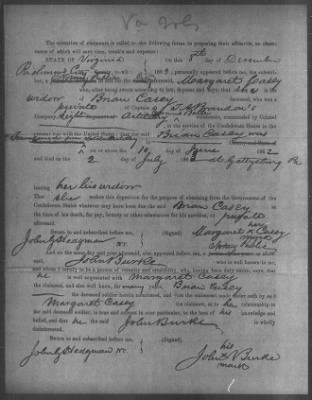 Va Vols
The attention of claimants is called to the following forms in preparing their affidavits, an observance of which will save time, trouble and expense:
STATE OF Virginia } On this 8th day of December
Richmond City to-wit: } 1863, personally appeared before me, the subscriber, a Margaret Casey
who, after being sworn according to law, deposes and says, that she is the
widow of Brian Casey deceased, who was a
private of Captain Brandon's
Company, Light Artillery commanded by Colonel
in the service of the Confederate States in the
present war with the United States; that the said Brian Casey was
on or about the 10 day of June 1862
and died on the 2 day of July 1863 at Gettysburg Pa
leaving her his widow
That she makes this deposition for the purpose of obtaining from the Government of the
Confederate States whatever may have been due the said Brian Casey at
the time of his death, for pay, bounty or other allowances for his services, as private
Sworn to and subscribed before me, } (Signed) Margaret X Casey
John G Hedgman } her mark
And on the same day and year, also appeared before me,
John Burke who is well known to me,
and whom I certify to be a person of veracity and credibility, who, having been duly sworn, says, that
he is well acquainted with Margaret Casey
the claimant, and also well knew, for years, Brian Casey
the deceased soldier herein mentioned, and that the statement made under oath by said
Margaret Casey the claimant, as to relationship to
the said deceased soldier, is true and correct in every particular, to the best of his knowledge and
belief, and that he the said John Burke is wholly
disinterested.
Sworn to and subscribed before me, } his
John G Hedgman } (Signed) John X Burke
mark